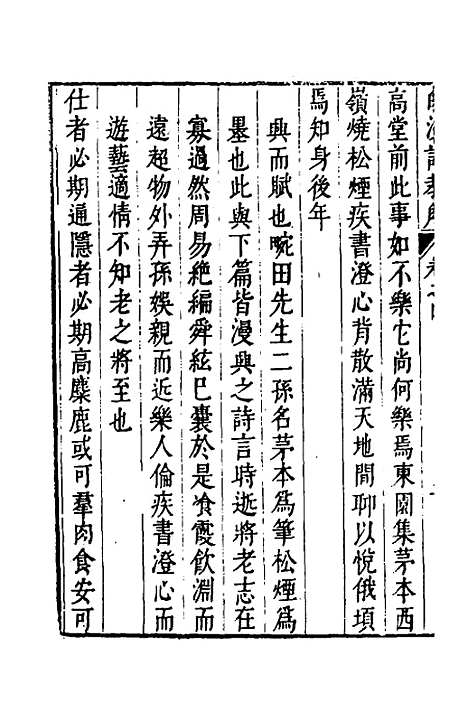 高堂前此事如不樂它尚何樂焉東園集茅本西
嶺燒松煙疾書澄心背散滿天地間聊以悅俄頃
焉知身後年
興而賦也畹田先生二孫名茅本爲筆松煙爲
墨也此與下篇皆漫興之詩言時逝將老志在
寡過然周易絶編舜絃巳囊於是飡霞飲淵而
遠超物外弄孫娛親而近樂人倫疾書澄心而
遊藝適情不知老之將至也
仕者必期通隱者必期高麋鹿或可羣肉食安可